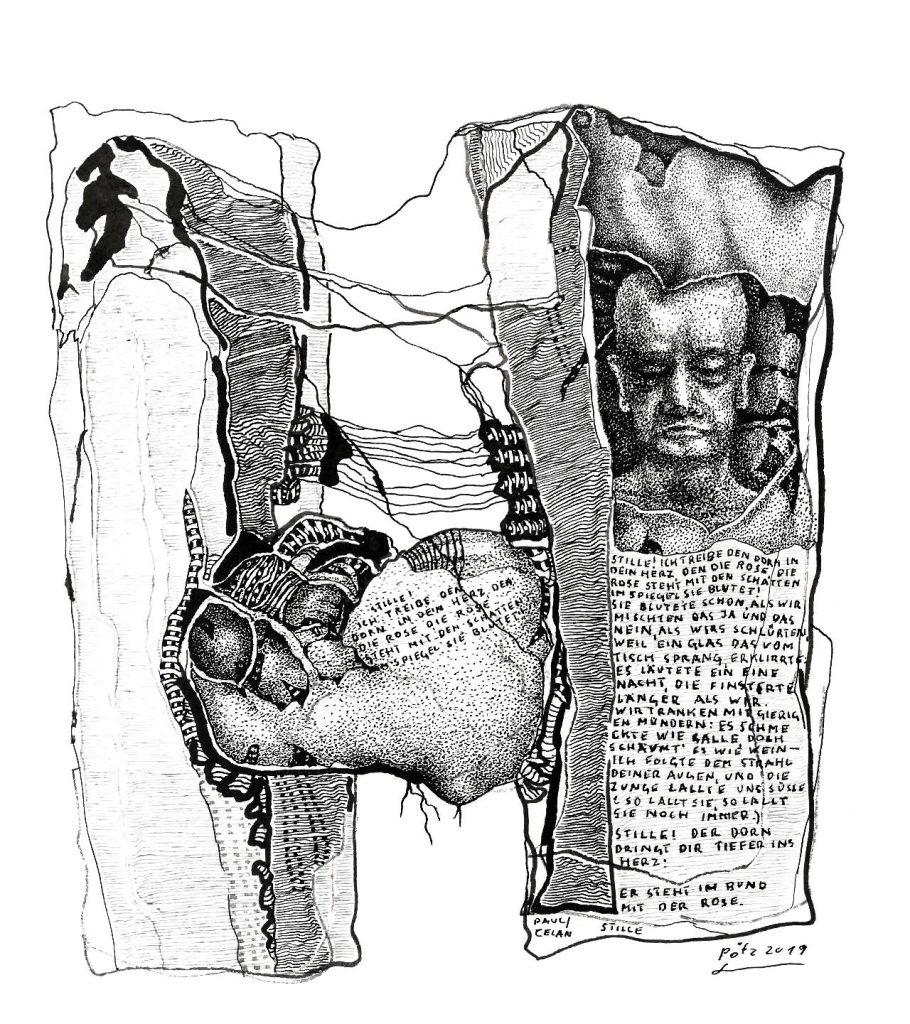 STILLE!
ICH TREIBE DEN
DORN IN DEN HERZ, DEN
DIE ROSE DIE ROSE
STEHT MIT DEN SCHATTEN
IM SPIEGEL SIE BLUTET!
STILLE! ICH TREIBE DEN DORN IN
DEIN HERZ DEN DIE ROSE, DIE
ROSE STEHT MIT DEN SCHATTEN
IM SPIEGEL SIE BLUTET!
SIE BLUTETE SCHON, ALS WIR
MISCHTEN DAS JA UND DAS
NEIN, ALS WIRS SCHLÜRTEN
WEIL EIN GLAS DAS VOM
TISCH SPRANG, ERKLIRRTE:
ES LÄUTETE EIN EINE
NACHT, DIE FINSTERTE
LÄNGER ALS WIR.
WIR TRANKEN MIT GIERIG
EN MÜNDERN: ES SCHME
CKTE WIE GALLE DOCH
SCHÄUMT' ES WIE WEIN—
ICH FOLGTE DEM STRAHL
DEINER AUGEN, UND DIE
ZUNGE LALLTE UNS SÜSSE
(SO LALLT SIE, SO LALLT
SIE NOCH IMMER.)
STILLE! DER DORN
DRINGT DIR TIEFER INS
HERZ:
ER STEHT IM BUND
MIT DER ROSE.
PAUL/
CELAN STILLE
Pötz 2019